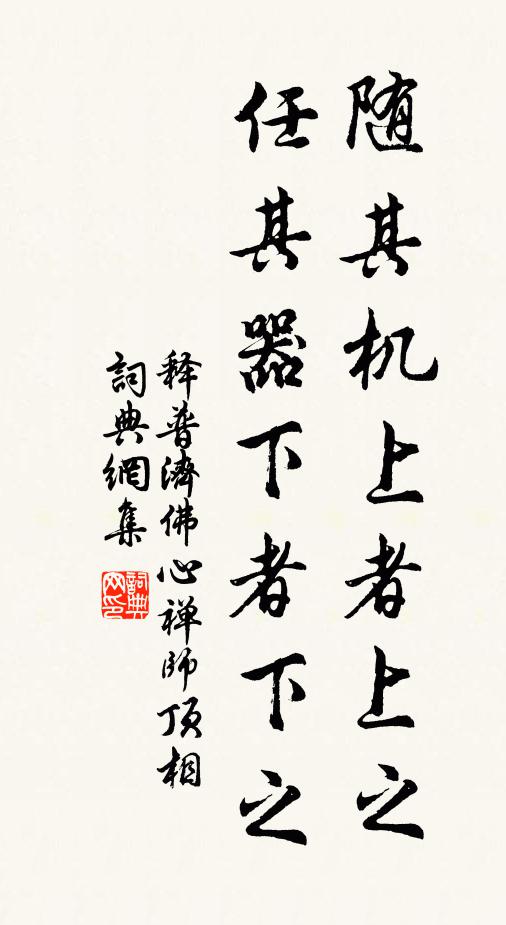 随其机上者上之
任其器下者下之
释普濟佛心禅师顶相
詞典網集
詞典网印